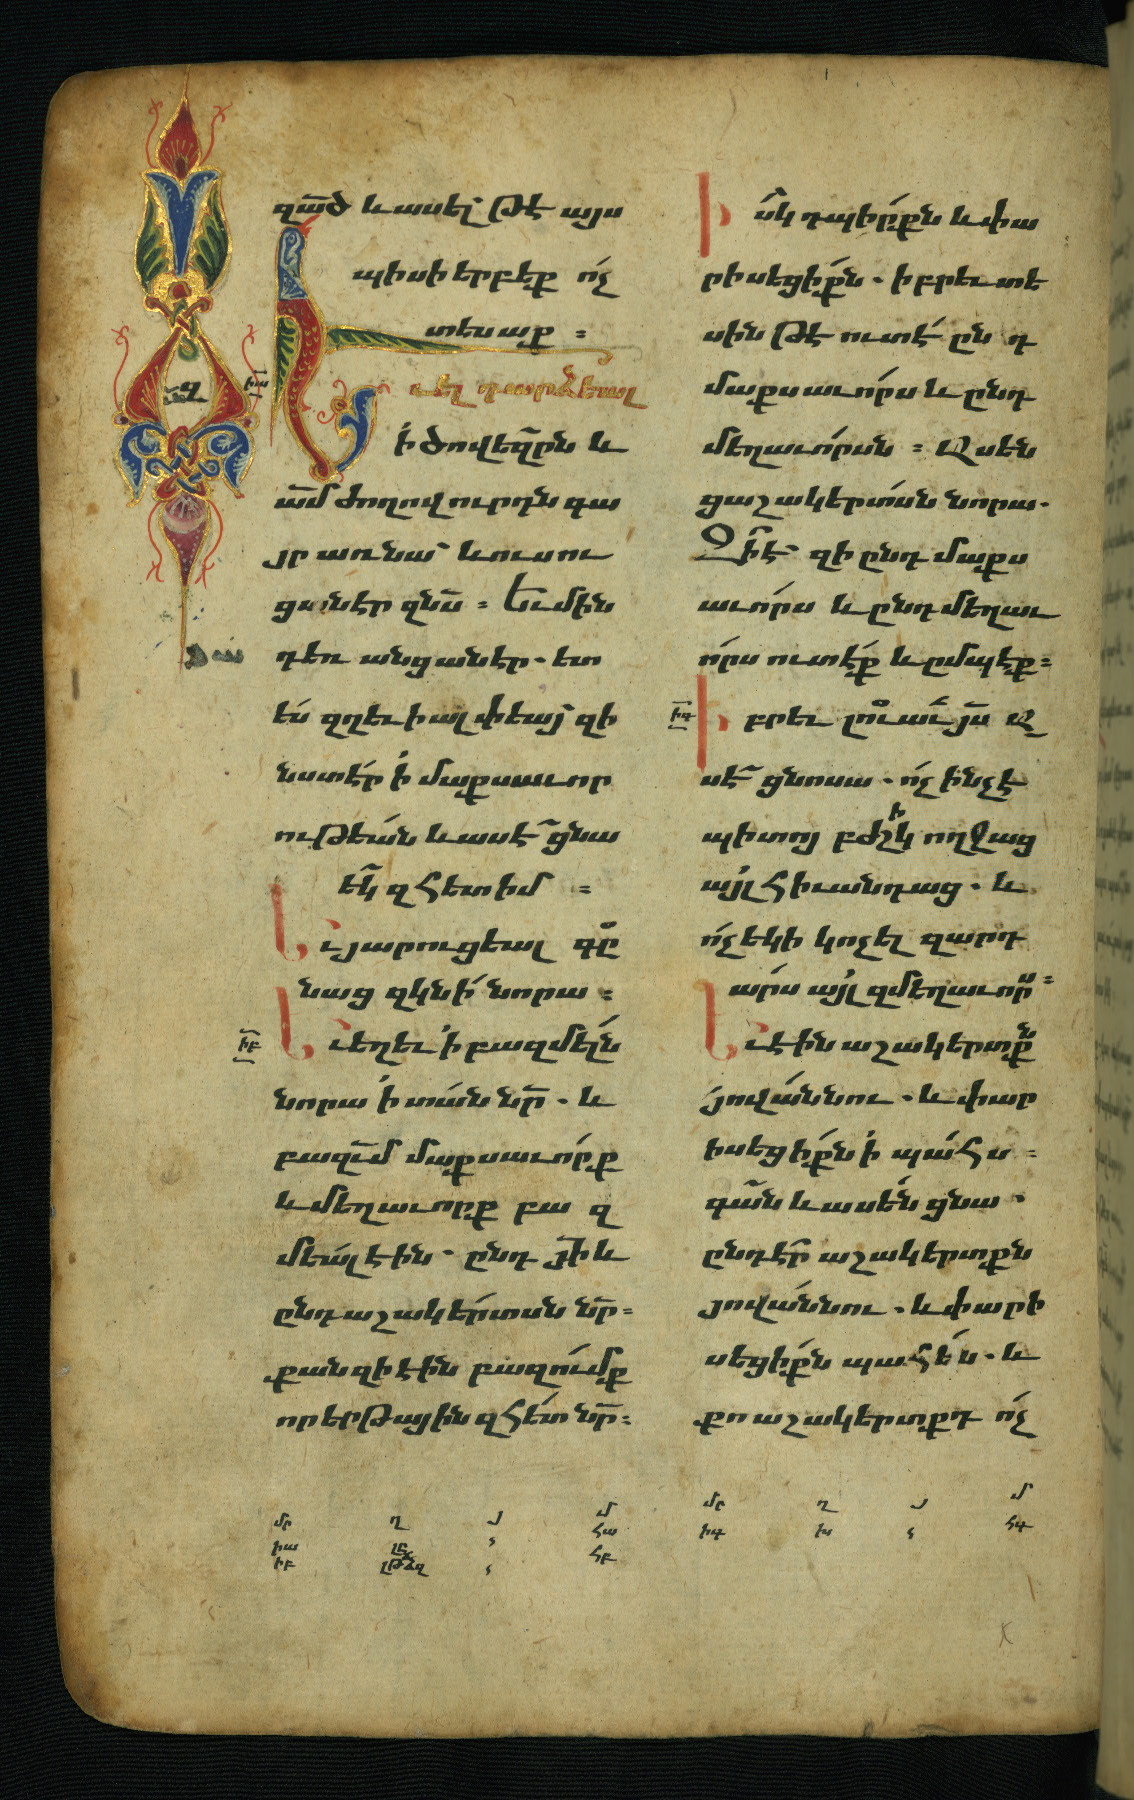 զա̄ծ և ասել՝ թէ այս
պիսի երբեք ո՛չ
տեսաք ։
Եւ ել դարձեալ
ի՛ ծովեզրն և
ա̄մ ժողովուրդն գա
յր առ նա՝ և ուսու
ցանէր զնս̄ ։ Եւ մին
դեռ անցանէր. ետ
ես զղևի ալփեայ՝ զի
նստէր ի՛ մաքսաւոր
ութեան և ասէ՝ ցնա
եկ զհետ իմ ։
Եւ յարուցեալ գը
նաց զկնի նորա ։
Եւ եղև ի՛ բազմելն
նորա ի՛ տան նր̄. և
բազւ̄մ մաքսաւորք
և մեղաւորք բա զ
մեալ էին. ընդ յի̄ և
ընդ աշակերտսն նր̄ ։
քանզի էին բազումք
որ երթային զհետ նր̄ ։
Իսկ դպիրքն և փա
րիսեցիքն. իբրև տե
սին թէ ուտէ ըն դ
մաքսաւորս և ընդ
մեղաւորսն ։ Ասեն
ցաշակերտսն նորա.
Զի՞ է զի ընդ մաքս
աւորս և ընդ մեղաւ
որս ուտէք և ըմպէք ։
Իբրև լուաւ յս̄ ա
սէ՝ ցնոսա. ո՛չ ինչ է
պիտոյ բժշիկ ողջաց
այլ հիւանդաց. և
ո՛չ եկի կոչել զարդ
արս այլ զմեղաւորս ։
Եւ էին աշակերտքն
յովաննու. և փար
իսեցիքն ի՛ պահս ։
գան և ասեն ցնա.
ընդէր աշակերտքն
յովաննու. և փարի
սեցիքն պահեն. և
քո աշակերտքդ ո՛չ
մր ղ մ
իա հա
իբ հբ
մր ղ մ
իգ հգ